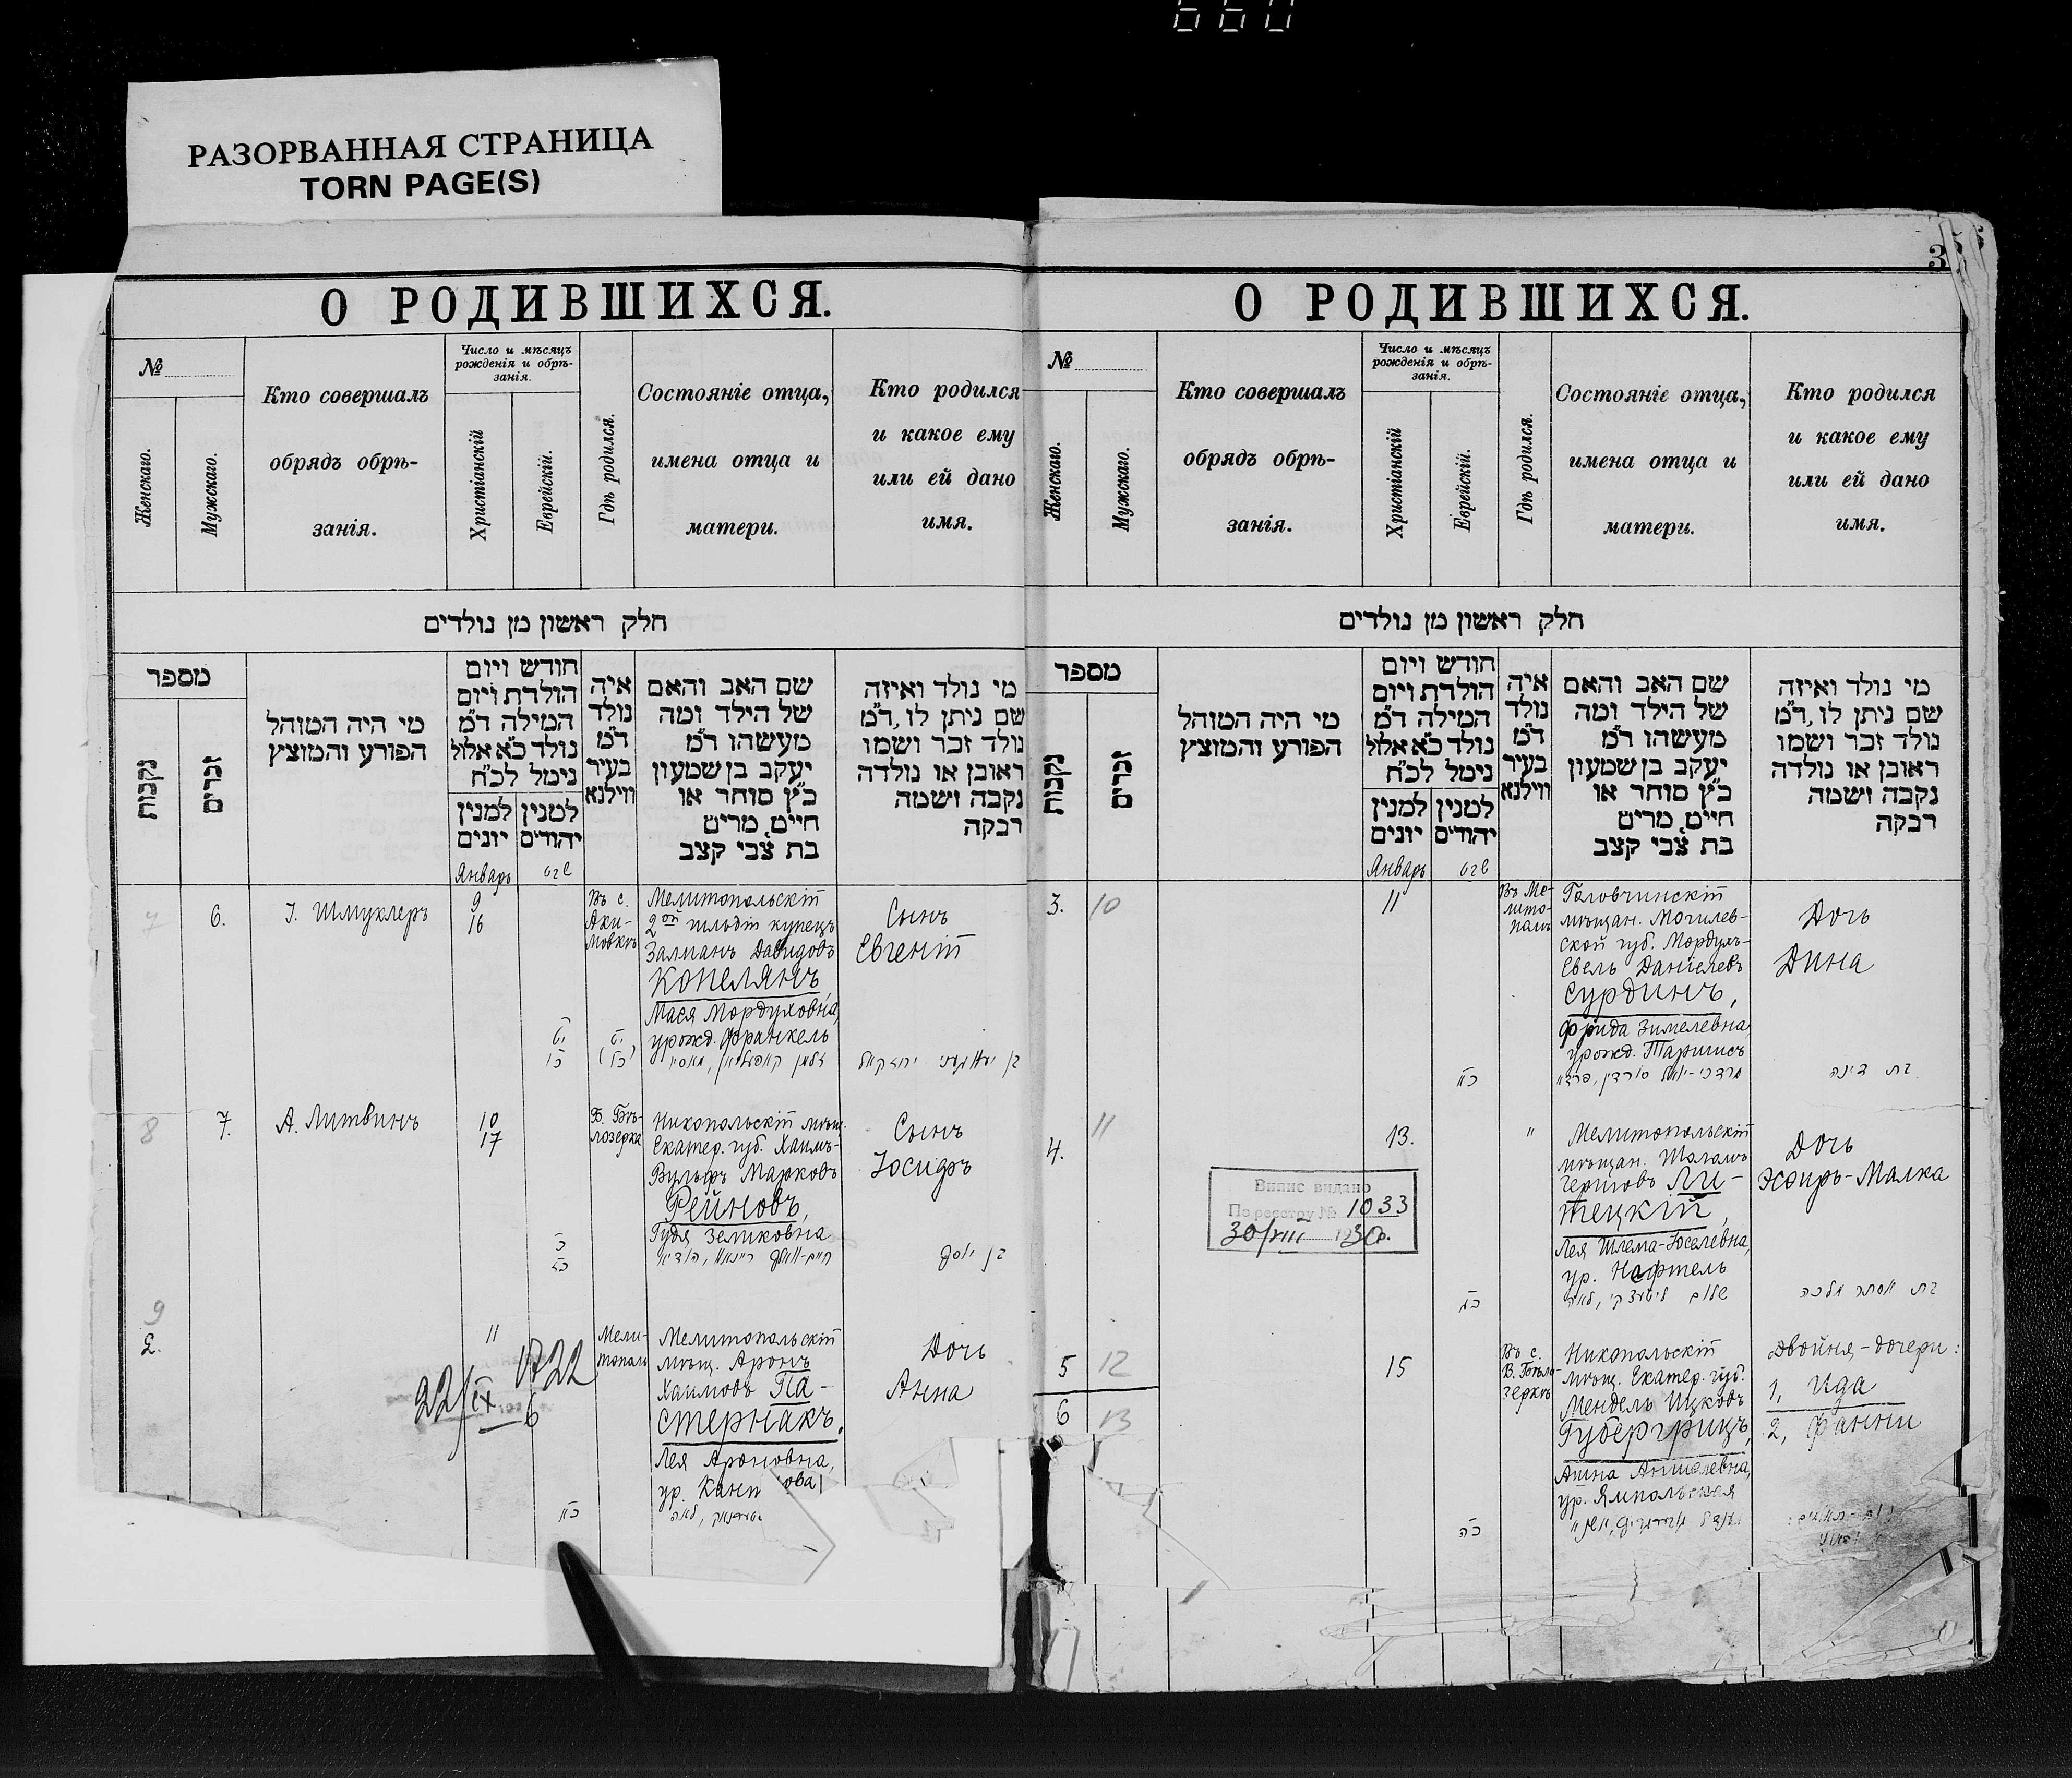 660
РАЗОРВАННАЯ СТРАНИЦА
TORN PAGE(S)
О РОДИВШИХСЯ.
№
Женскаго.
Мужскаго.
Кто совершалъ
обрядъ обрѣ-
занія.
Число и мѣсяцъ
рожденія и обрѣ-
занія.
Христіанскій
Еврейскій.
Гдѣ родился.
Состояніе отца,
имена отца и
матери.
Кто родился
и какое ему
или ей дано
имя.
חלק ראשון מן נולדים
מספר
נקבות
זכרים
מי היה המוהל
הפורע והמוצץ
חודש ויום
הולדת ויום
המילה ד״מ
נולד כ״א אלול
נימל לכ״ח
למנין
יונים
למנין
יהודים
איה
נולד
ד״מ
בעיר
ווילנא
שם האב והאם
של הילד ומה
מעשהו ד״מ
יעקב בן שמעון
כ״ץ סוחר או
חייט, מרים
בת צבי קצב
מי נולד ואיזה
שם ניתן לו, ד״מ
נולד זכר ושמו
ראובן או נולדה
נקבה ושמה
רבקה
Январь
שבט
7
6.
І. Шмуклеръ
9
16
Въ с.
Аки-
мовкѣ
Мелитопольскій
2ой гильдіи купецъ
Залманъ Давидовъ
Копелянъ,
Мася Мордуховна,
урожд. Франкель
Сынъ
Евгеній
8
7.
А. Литвинъ
10
17
Б. Бѣ-
лозерка
Никопольскій мѣщ.
Екатер. губ. Хаимъ-
Вульфъ Марковъ
Рейновъ,
Гудя Зеликовна
Сынъ
Іосифъ
בן יוסף
9
2.
11
Мели-
тополь
Мелитопольскій
мѣщ. Аронъ
Хаимовъ Па-
стернакъ,
Лея Ароновна,
Дочь
Анна
22/IX
6
О РОДИВШИХСЯ.
3
№
Женскаго.
Мужскаго.
Кто совершалъ
обрядъ обрѣ-
занія.
Число и мѣсяцъ
рожденія и обрѣ-
занія.
Христіанскій
Еврейскій.
Гдѣ родился.
Состояніе отца,
имена отца и
матери.
Кто родился
и какое ему
или ей дано
имя.
חלק ראשון מן נולדים
מספר
נקבות
זכרים
מי היה המוהל
הפורע והמוצץ
חודש ויום
הולדת ויום
המילה ד״מ
נולד כ״א אלול
נימל לכ״ח
למנין
יונים
למנין
יהודים
איה
נולד
ד״מ
בעיר
ווילנא
שם האב והאם
של הילד ומה
מעשהו ד״מ
יעקב בן שמעון
כ״ץ סוחר או
חייט, מרים
בת צבי קצב
מי נולד ואיזה
שם ניתן לו, ד״מ
נולד זכר ושמו
ראובן או נולדה
נקבה ושמה
רבקה
Январь
שבט
3.
10
11
Въ Ме-
лито-
полѣ
Головчинскій
мѣщан. Могилев-
ской губ. Мордухъ-
Евель Даніелевъ
Сурдинъ,
Фрида Зимелевна,
урожд. Таршисъ
Дочь
Дина
בת דינה
4.
11
13.
"
Мелитопольскій
мѣщан. Шоломъ
Гершовъ Ли-
тецкій,
Лея Шлема-Іоселевна,
ур. Нафтель
Дочь
Эсфирь-Малка
בת אסתר מלכה
Випис видано
По реєстру № 1033
30/VIII 1930р.
5
12
6
13
15
Въ с.
В. Бѣло-
зеркѣ
Никопольскій
мѣщ. Екатер. губ.
Мендель Ицковъ
Губергрицъ,
Аншелевна,
ур. Ямпольская
Двойня, - дочери:
1, Ида
2, Фанни